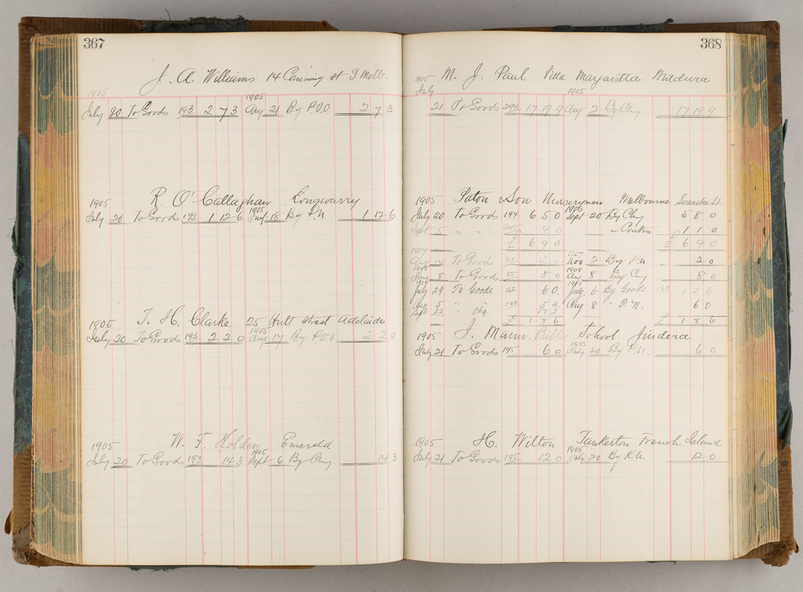 367
J. A. Williams 14 Canning st N Melb.
1905 1905
July 20 To Goods 193 2 7 3 Aug 21 By P.O.O 2 7 3
1905 R. O'Callaghan Longwarry
1905
July 20 To Goods 193 1 12 6 Aug 18 By P.N 1 12 6
1905 T. H. Clarke 25 Hutt Street Adelaide
1905
July 20 To Goods 193 2 2 0 Aug 14 By P.O.O 2 2 0
1905 W. F. Holden Emerald
1905
July 20 To Goods 193 14 3 Sept 6 By Chq 14 3
368
1905 M. J. Paul Villa Margaretta Mildura
July 1905
21 To Goods 294 17 19 9 Aug 2 By Chq 17 19 9
1905 Paton & Son Nurserymen Melbourne Swanston St.
1906
July 20 To Goods 194 6 5 0 Sept 20 By Chq 5 8 0
Sept 5 " " 4 0 " Contra 1 1 0
£ 6 9 0 £ 6 9 0
1907
Aug 14 To Goods 2 0 Nov 2 By P.N. 2 0
1908 1908
8 To Goods 8 0 Aug 8 By Chq 8 0
July 29 To Goods 6 0 By Goods 1 2 6
Aug 8 " P.N. 6 0
£ 1 8 6 £ 1 8 6
1905 J. Mann Public School Jindera
1905
July 21 To Goods 195 6 0 July 20 By P.N. 6 0
1905 H. Wilton Tankerton French Island
1905
July 21 To Goods 195 12 0 July 20 By P.N 12 0